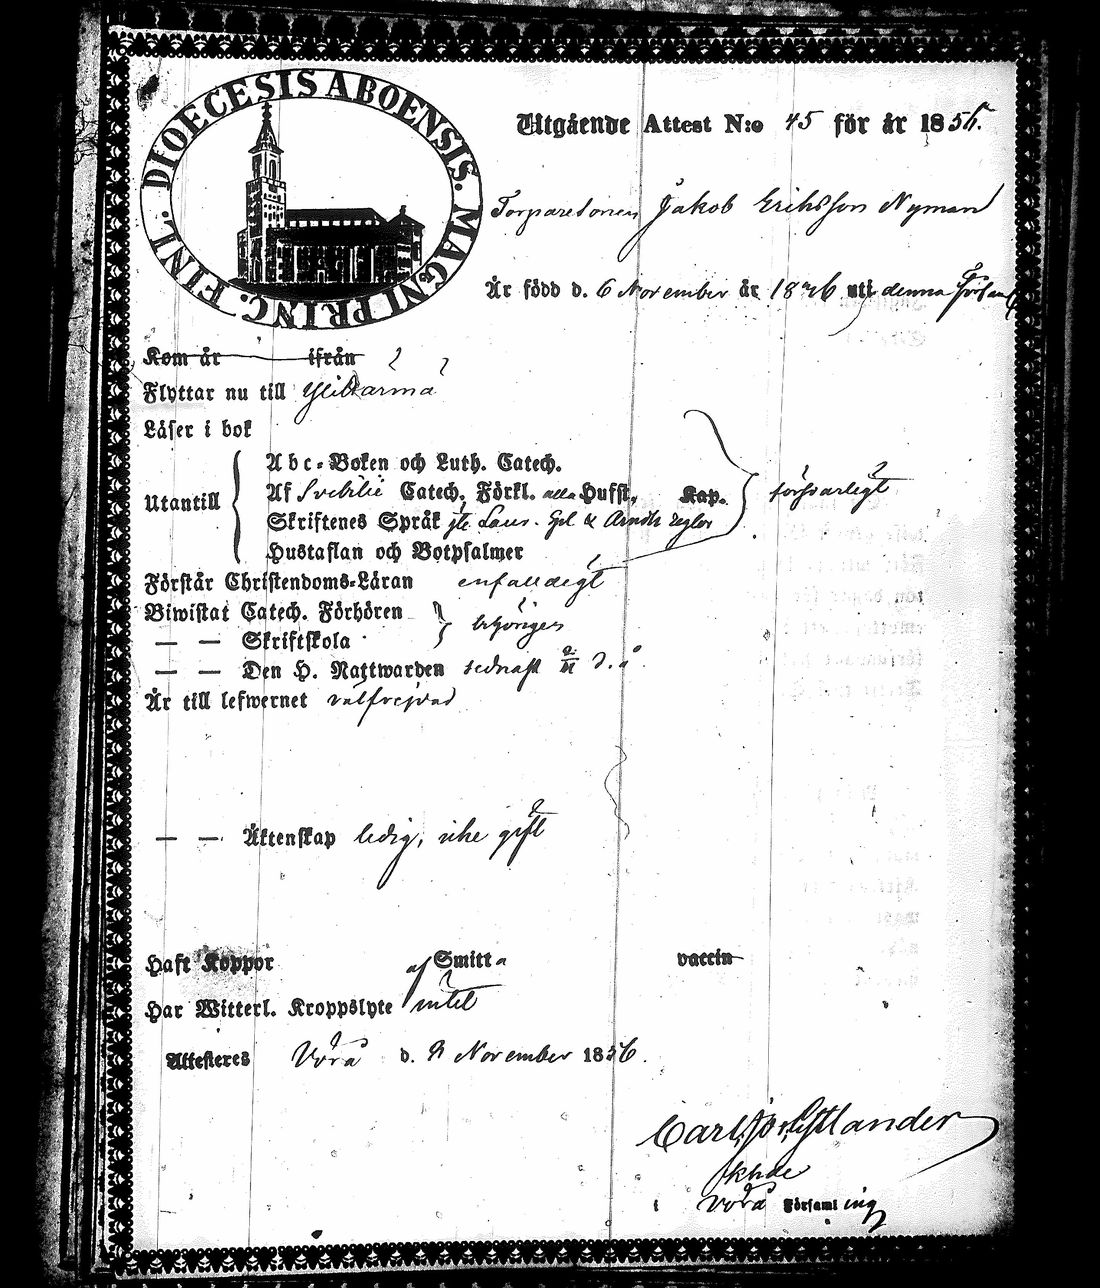 DIOECESIS ABOENSIS. MAGNI PRINC. FINL.
Utgående Attest N:o 45 för år 1856.
Torparesonen Jakob Eriksson Nyman
Är född d. 6 November år 1826 uti denna Förs
Kom år ifrån
Flyttar nu till Ylikärmä
Läser i bok
Utantill
Abc-Boken och Luth. Catech.
Af Svebilii Catech. Förkl. alla Hufst. Kap. försvarligt
Skriftenes Språk
Hustaflan och Botpsalmer
Förstår Christendoms-Läran enfaldigt
Biwistat Catech. Förhören
— — Skriftskola
— — Den H. Nattwarden sednast d. å.
Är till lefwernet välfrejdad
— — Äktenskap ledig, icke gift
Haft Koppor af Smitta vaccin
Har Witterl. Kroppslyte intet
Attesteres Vörå d. November 1856.
Carl
i Vörå Församling